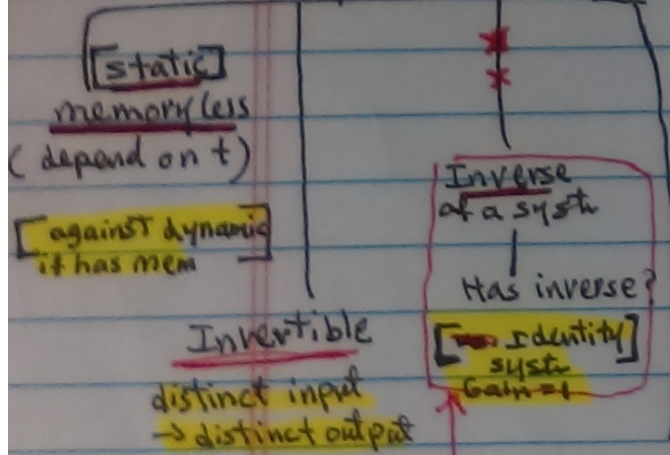 [static]
memoryless
( depend on t)
[against dynamic
it has mem]
Invertible
distinct input
→ distinct output
Inverse
of a syst
Has inverse?
[Identity]
syst
Gain = 1